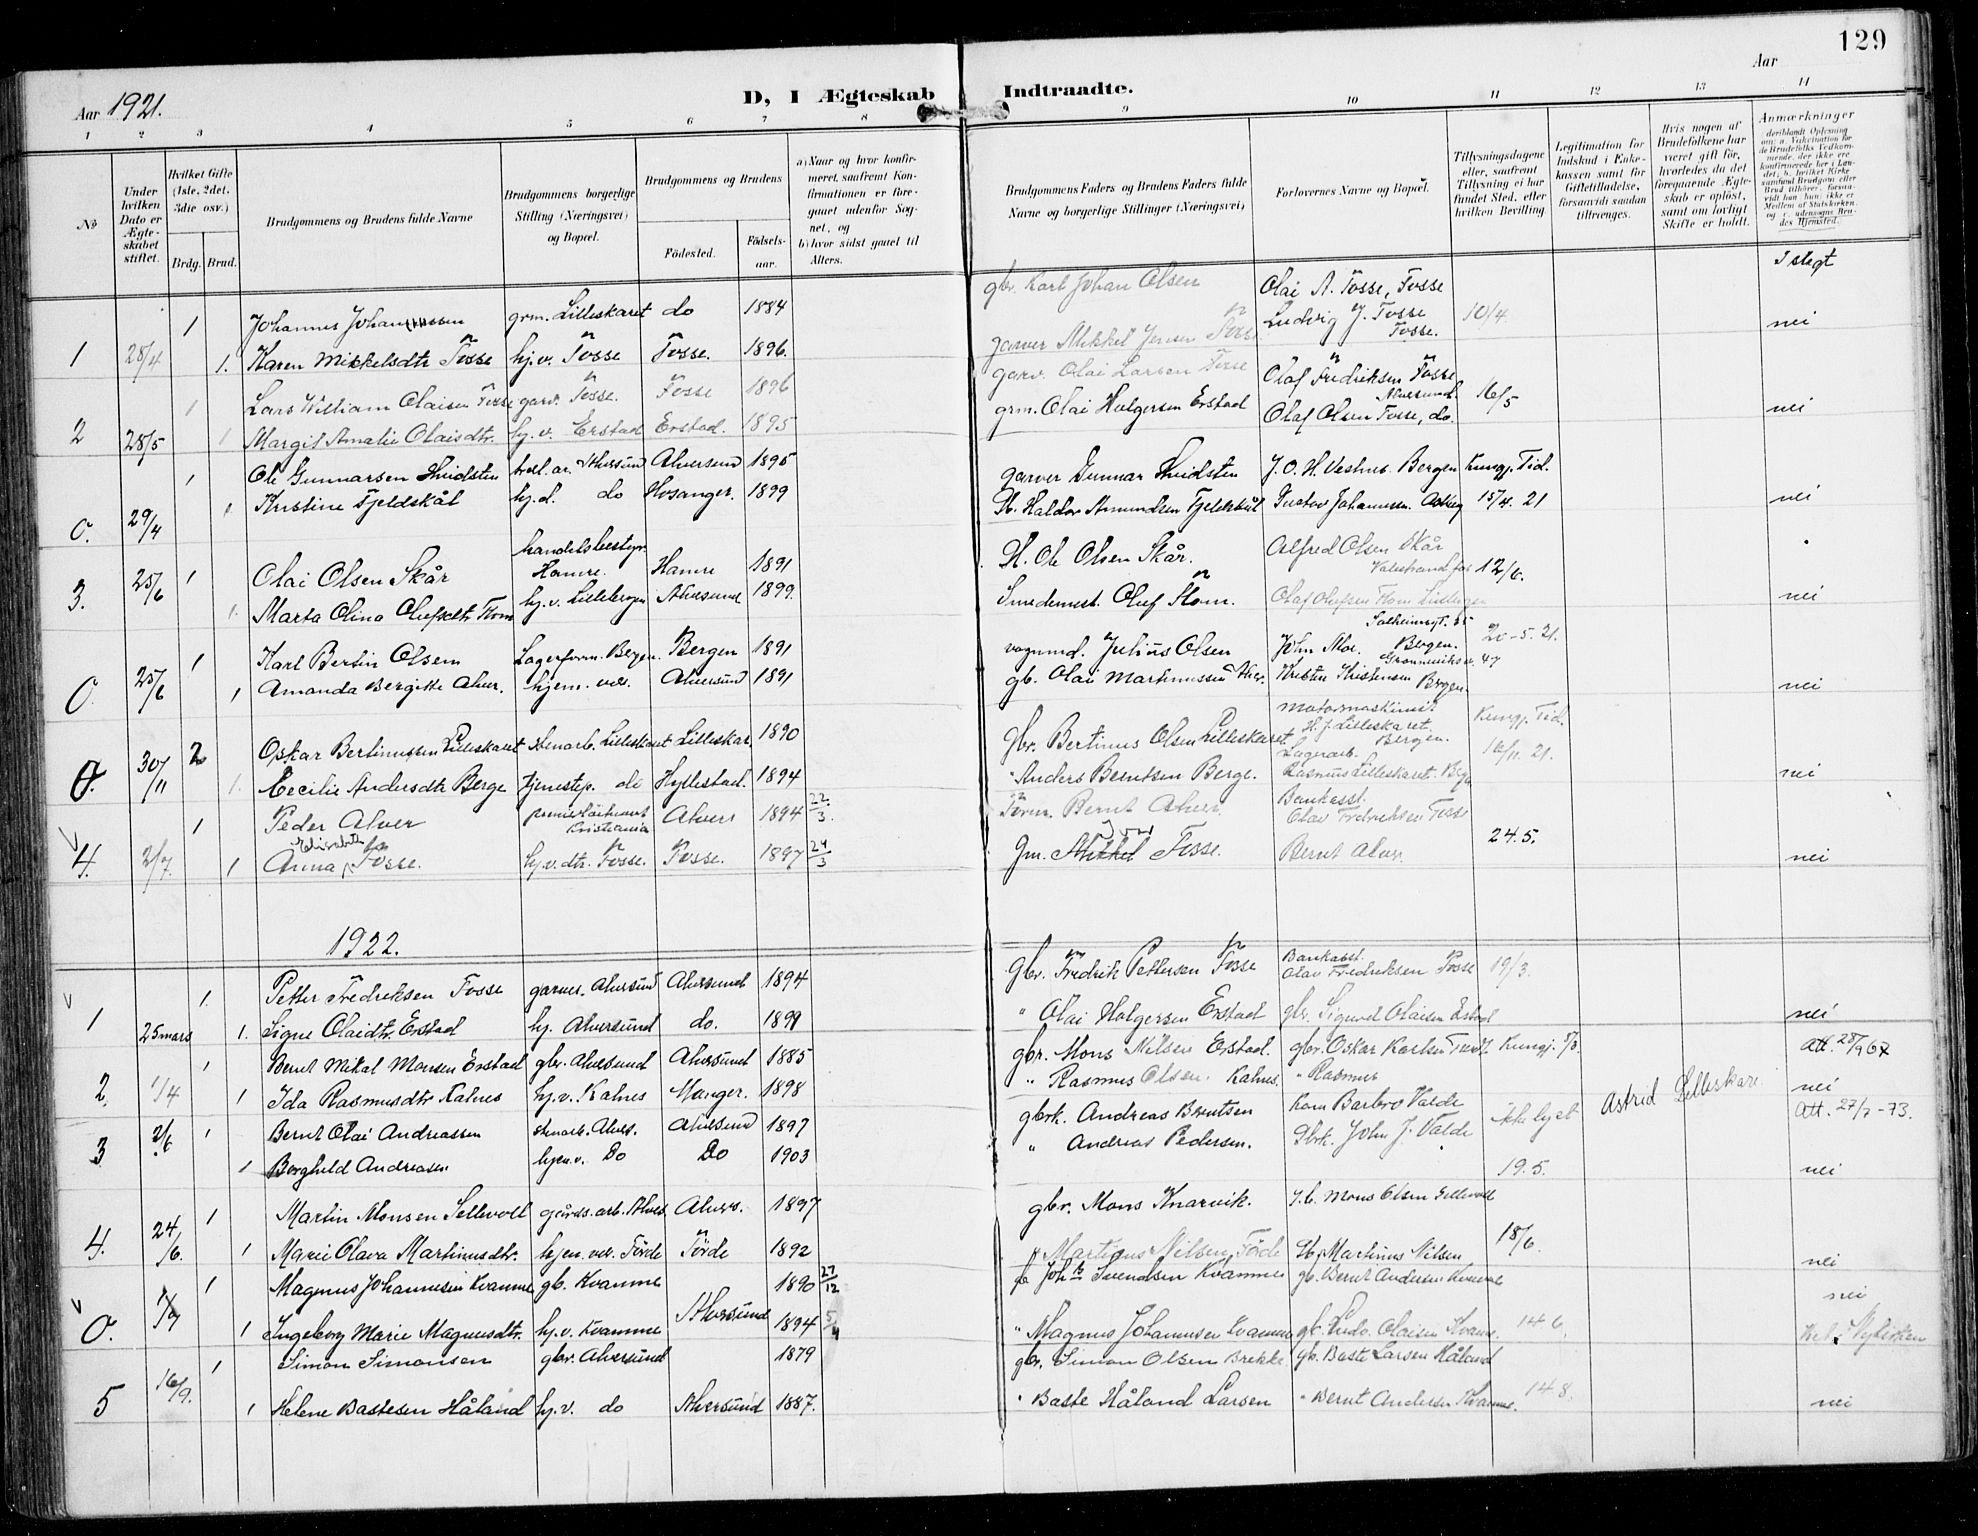 129
Aar 1921.
D, I Ægteskab Indtraadte.
Aar
1 2 3 4 5 6 7 8 9 10 11 12 13 14
No
Under hvilken Dato er Ægteskabet stiftet.
Hvilket Gifte (1ste, 2det, 3die osv.)
Brdg. Brud.
Brudgommens og Brudens fulde Navne
Brudgommens borgerlige Stilling (Næringsvei) og Bopæl.
Brudgommens og Brudens
Födested. Födsels-aar.
a) Naar og hvor konfirmeret, saafremt Konfirmationen er foregaaet udenfor Sognet, og
b) hvor sidst gaaet til Alters.
Brudgommens Faders og Brudens Faders fulde Navne og borgerlige Stillinger (Næringsvei)
Forlovernes Navne og Bopæl.
Tillysningsdagene eller, saafremt Tillysning ei har fundet Sted, efter hvilken Bevilling
Legitimation for Indskud i Enkekassen samt for Giftetilladelse, forsaavidt saadan tiltrænges.
Hvis nogen af Brudefolkene har været gift för, hvorledes da det foregaaende Ægteskab er oplöst, samt om lovligt Skifte er holdt.
Anmærkninger
I slegt
1 28/4 1 Johannes Johannessen grm. Lilleskaret do 1884 gbr. Karl Johan Olsen Olai A. Fosse, Fosse 10/4 nei
1. Karen Mikkelsdtr Fosse hj.v. Fosse Fosse. 1896. garver Mikkel Jensen Fosse Ludvig J. Fosse Fosse.
2 28/5 1 Lars William Olaisen Fosse garv. Fosse. Fosse 1896 garv. Olai Larsen Fosse Olaf Fredriksen Fosse Alversund. 16/5 nei
1 Margit Amalie Olaisdtr. hj.v. Erstad Erstad. 1895 grm. Olai Holgersen Erstad Olaf Olsen Fosse, do.
0. 29/4 1 Ole Gunnarsen Hvidsten Alversund 1895 garver Gunnar Hvidsten J. O. H. Bergen Kungj. Tid.
1 Kristine Fjeldskål hj.d. do Hosanger. 1899 Gb. Haldor Amundsen Fjeldskål Gustav Johannesen 15/4. 21 nei
3. 25/6 1 Olai Olsen Skår handelsbestyr. Hamre. Hamre 1891 H. Ole Olsen Skår. Alfred Olsen Skår 12/6.
1. Marta Olina Olufsdtr Hom hj.v. Lillebergen Alversund 1899. Smedemest. Oluf Hom. Olaf Olufsen Hom nei
0. 25/6 1 Karl Bertin Olsen Lagerform. Bergen. Bergen 1891 vognmd. Julius Olsen John Moe. Bergen. 20-5. 21.
1 Amanda Bergitte Alver. hjem. ver. Alversund 1891 gb. Olai Martinussen Alver. Kristen Kristensen Bergen. nei
0. 30/11 2 Oskar Bertinussen Lilleskaret stenarb. Lilleskaret Lilleskar. 1890 gbr. Bertinus Olsen Lilleskaret motormaskinist H. J. Lilleskaret. Bergen. Kungj. Tid. 16/11. 21.
1. Cecilie Andersdtr Berge tjenestep. do Hyllestad. 1894 " Anders Berntsen Berge. Lagerarb. Rasmus Lilleskaret. nei
4. 2/7. 1 Peder Alver premierløitnant Kristiania Alvers 1894 22/3. Bernt Alver. Bankasst. Olav Fredriksen Fosse 24.5.
1 Anna Elisabeth Fosse. hj.v. dtr. Fosse. Fosse. 1897 24/3 Gm. Fosse. Bernt Alver. nei
1922.
1 25 mars 1. Petter Fredriksen Fosse garver. Alversund Alversund 1894 gbr. Fredrik Pettersen Fosse Bankasst. Olav Fredriksen Fosse 19/3.
1. Signe Olaidtr. Erstad hj. Alversund do. 1899 " Olai Holgersen Erstad gbr. Sigurd Olaisen Erstad nei
2. 1/4 1 Bernt Mikal Monsen Erstad gbr. Alversund Alversund 1885 gbr. Mons Nilsen Erstad. gbr. Oskar Karlsen Kungj. Att. 28/9 67
1 Ida Rasmusdtr Kalnes hj.v. Kalnes Manger. 1898 " Rasmus Olsen. Kalnes. " Rasmus Astrid Lilleskare. nei
3 2/6 1 Bernt Olai Andreassen stenarb. Alvers. Alversund 1897 gbrk. Andreas Berntsen Kom Barbro Valde ikke lyst Att. 27/7-73.
1 Borghild Andreasen hjem.v. Do Do 1903 " Andreas Pedersen. Gbrk. John J. Valde 19.5. nei
4. 24/6. 1 Martin Monsen Sellevolt gårds.arb. Alvers. Alvers. 1897 gbr. Mons Knarvik. Mons Olsen Sellevolt 18/6.
1 Marie Olava Martinusdtr. hjem. ver. Förde Förde 1892 Martinus Nilsen Förde Martinus Nilsen nei
0. 1/7 1 Magnus Johannesen Kvamme gb. Kvamme 1890 27/12 Johs Svendsen Kvamme gb. Bernt Andersen Kvamme nei
1 Ingeborg Marie Magnusdtr. hj.v. Kvamme Alversund 1894 5/4 " Magnus Johannesen Kvamme gb. Ludv. Olaisen Kvamme. 14 6. Nykirken
5 16/9. 1 Simon Simonsen gbr. Alversund 1879 gbr. Simon Olsen Brekke. gb. Baste Larsen Håland
1 Helene Bastesen Håland hj.v. do Alversund 1887. " Baste Håland Larsen " Bernt Andersen Kvamme. 14 8. nei